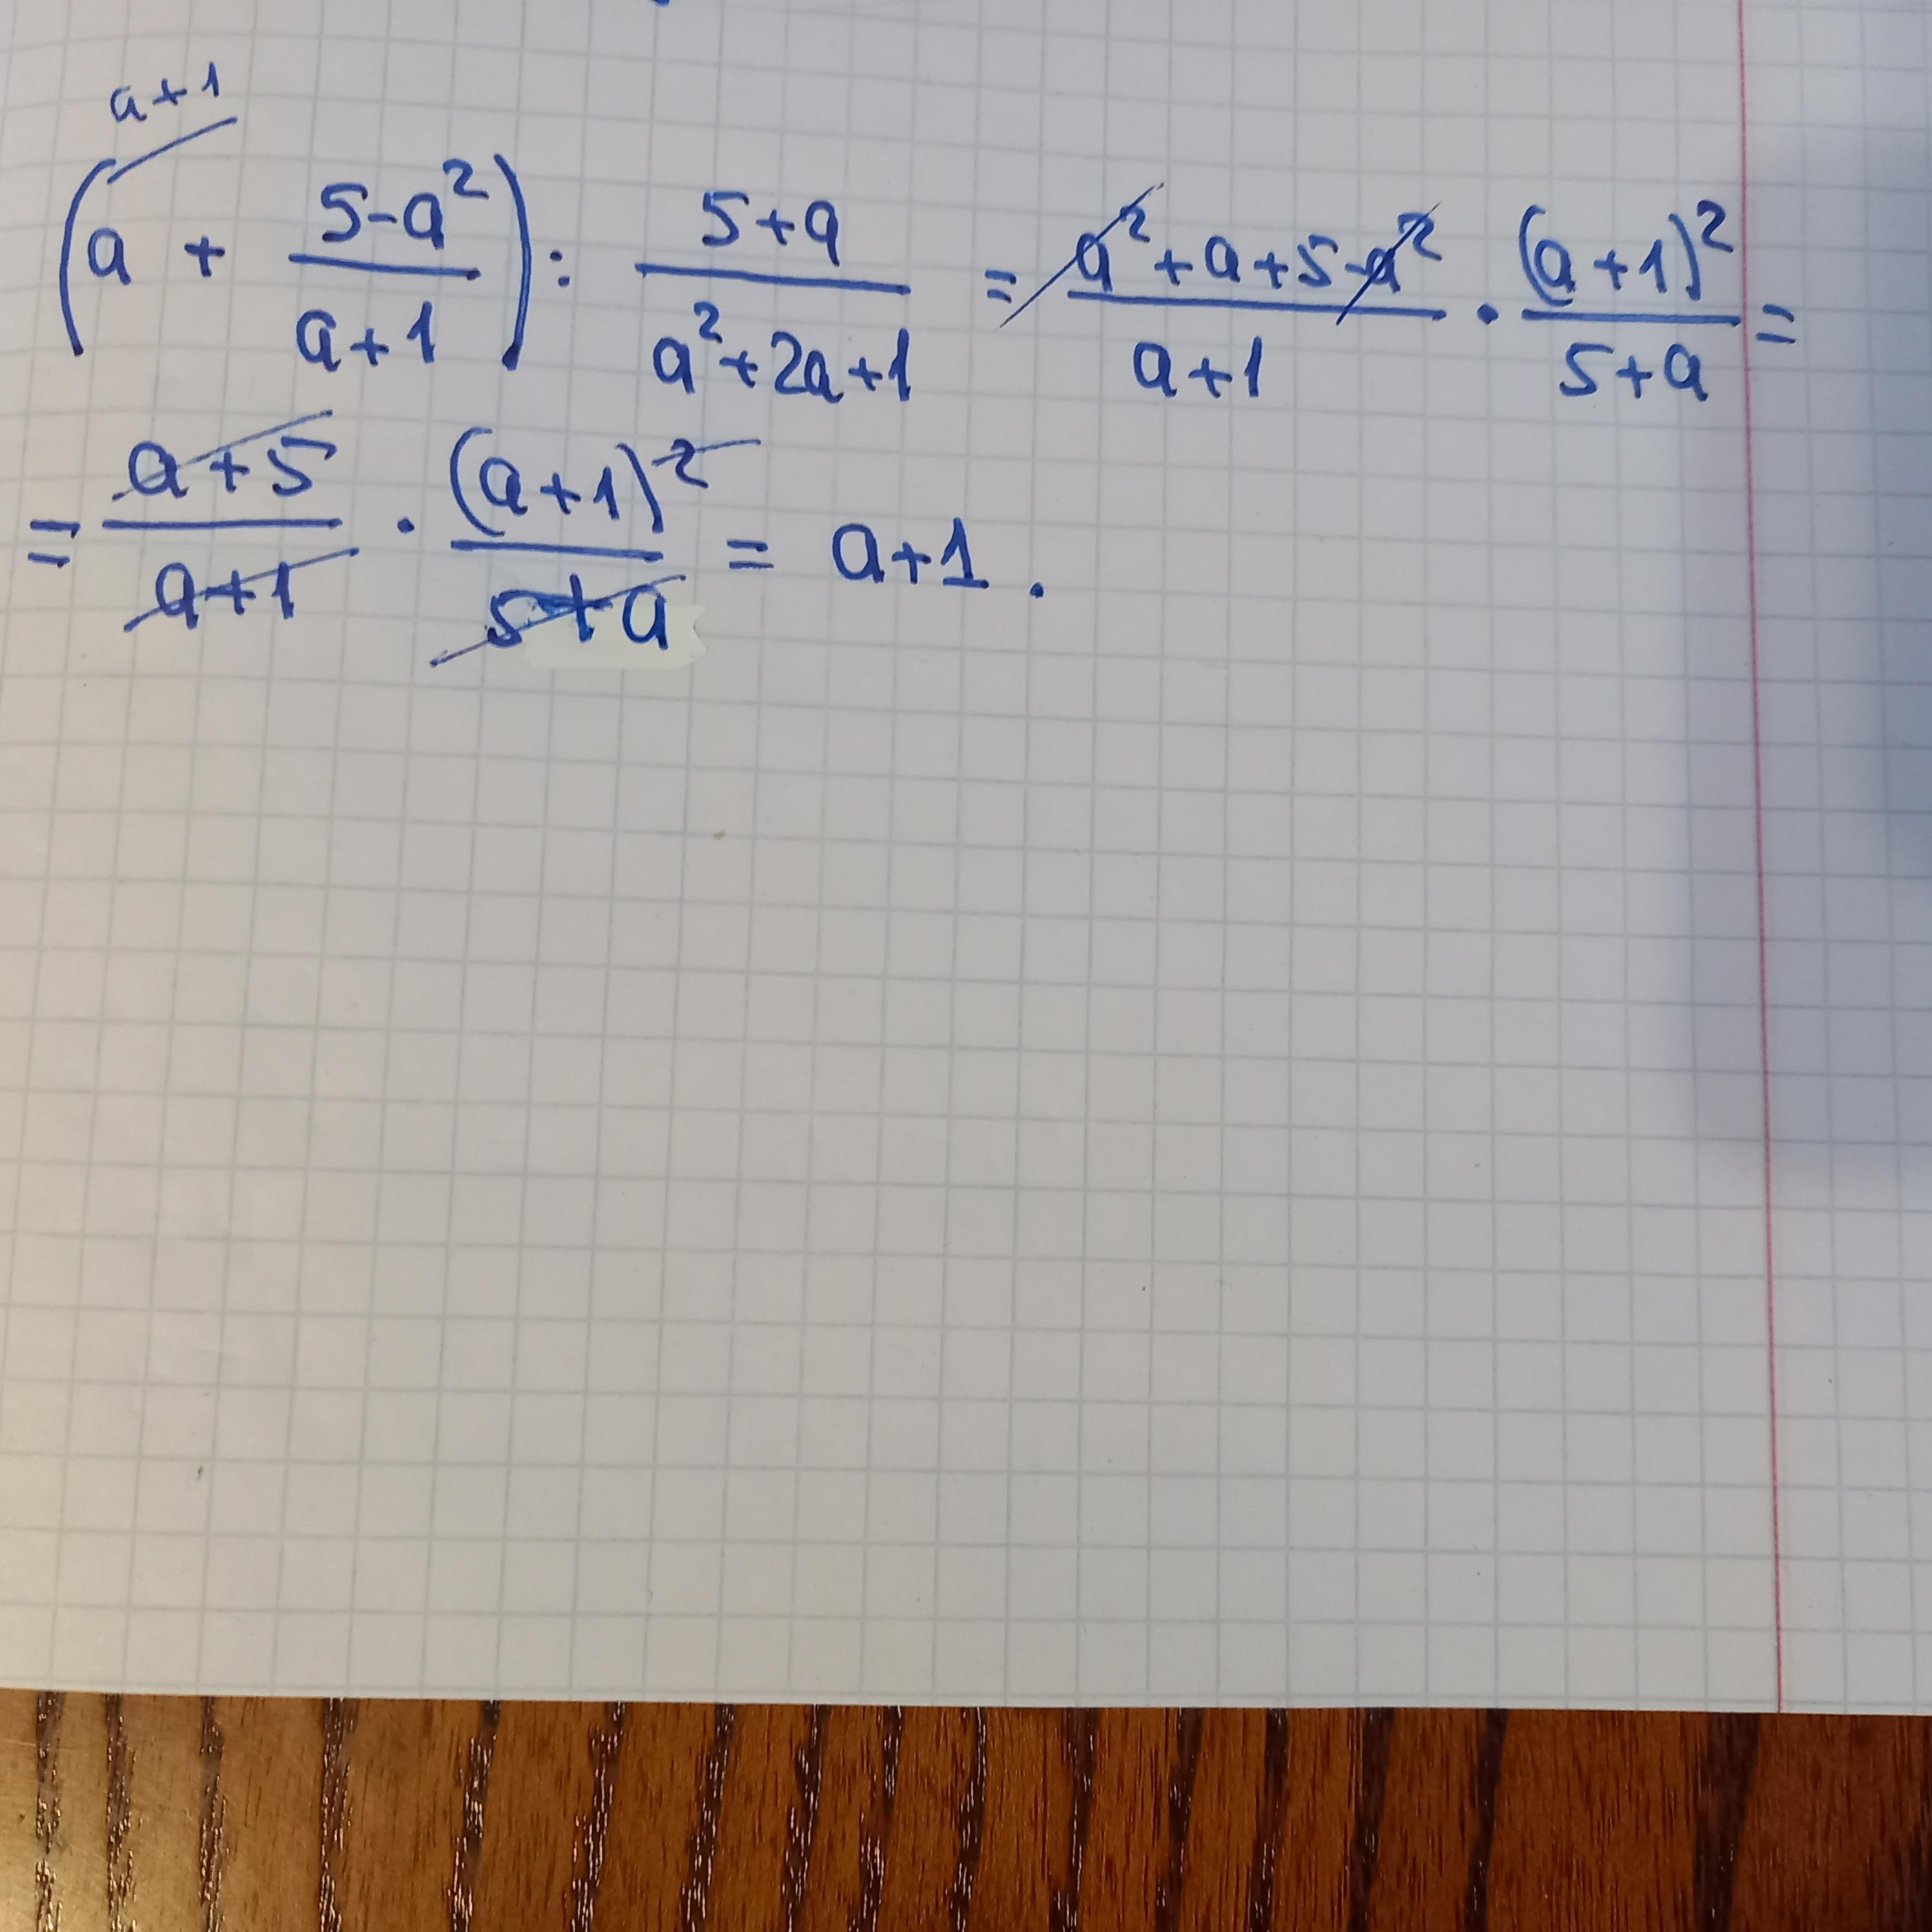 a+1
(a + \frac{5-a^2}{a+1}) : \frac{5+a}{a^2+2a+1} = \frac{a^2+a+5-a^2}{a+1} · \frac{(a+1)^2}{5+a} =
= \frac{a+5}{a+1} · \frac{(a+1)^2}{5+a} = a+1.